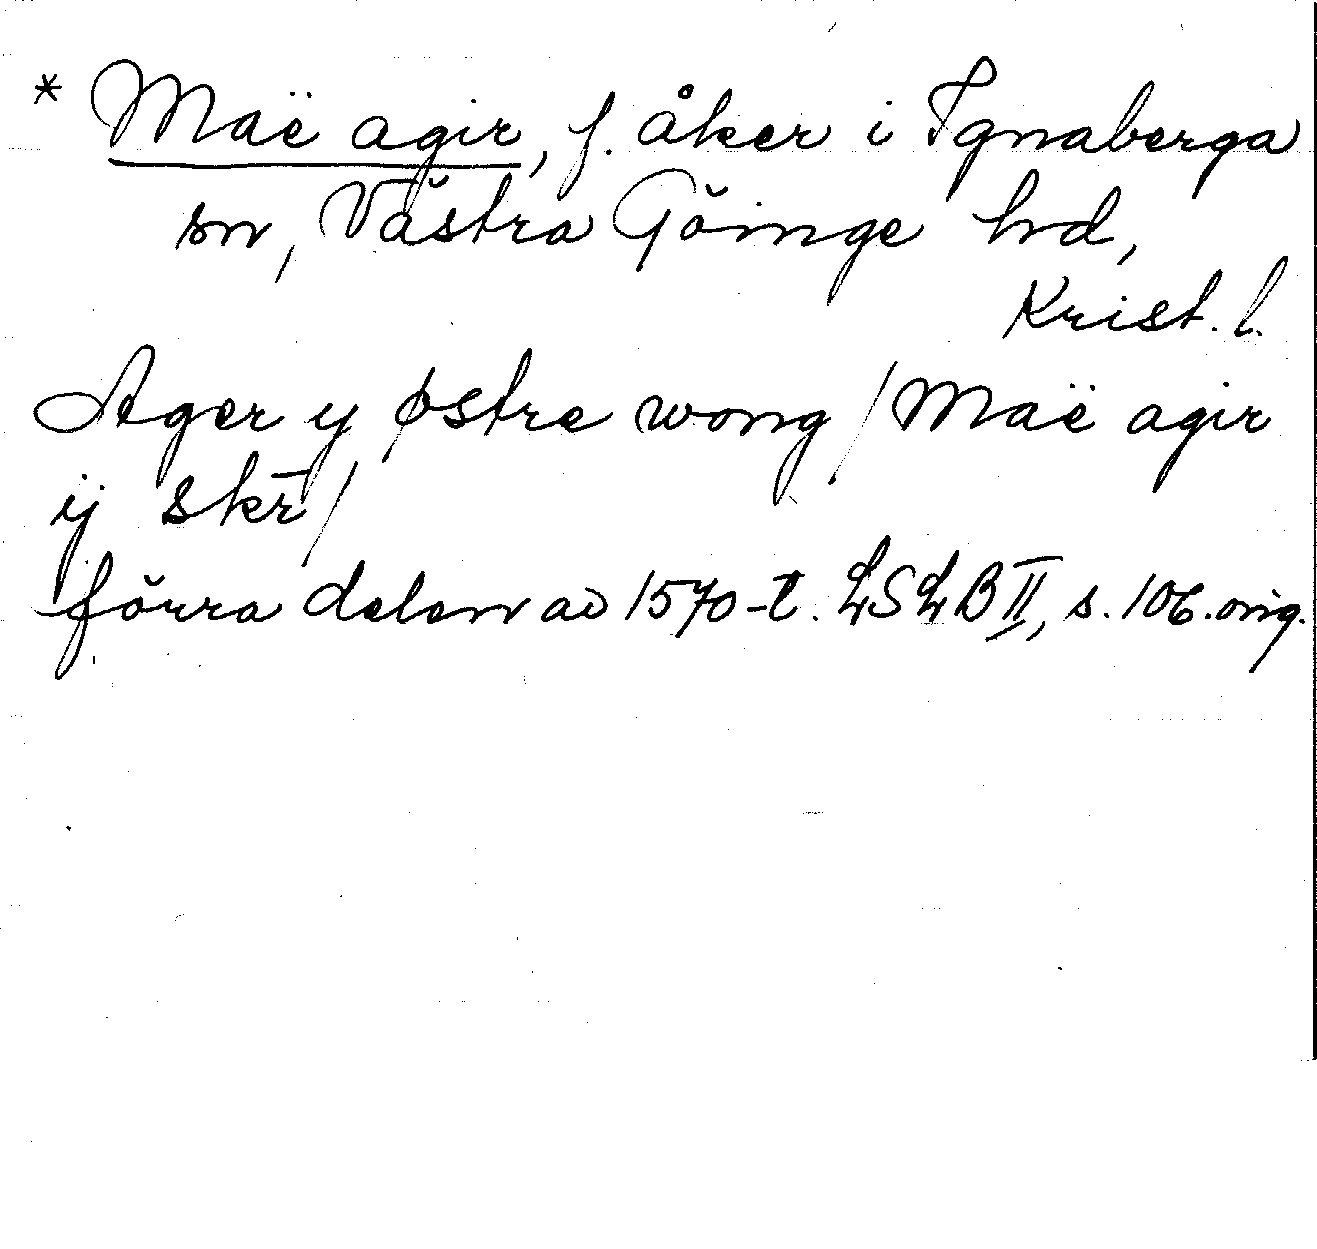 * Maë agir, f. åker i Ignaberga
sn, Västra Göinge hd,
Krist. l.
Ager y østre wong / Maë agir
ij skr̄ /
förra delen av 1570-t. LSLB II, s. 106. orig.